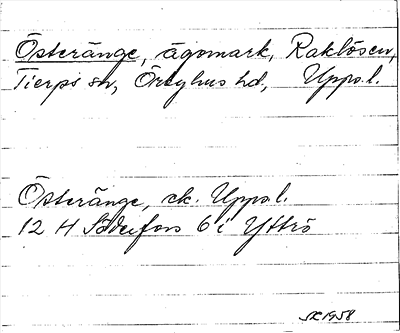 Österänge, ägomark, Raklösen,
Tierps sn, Örbyhus hd, Upps. l.
Österänge, ek. Upps l.
12 H Söderfors 6 i Yttrö
SK 1958